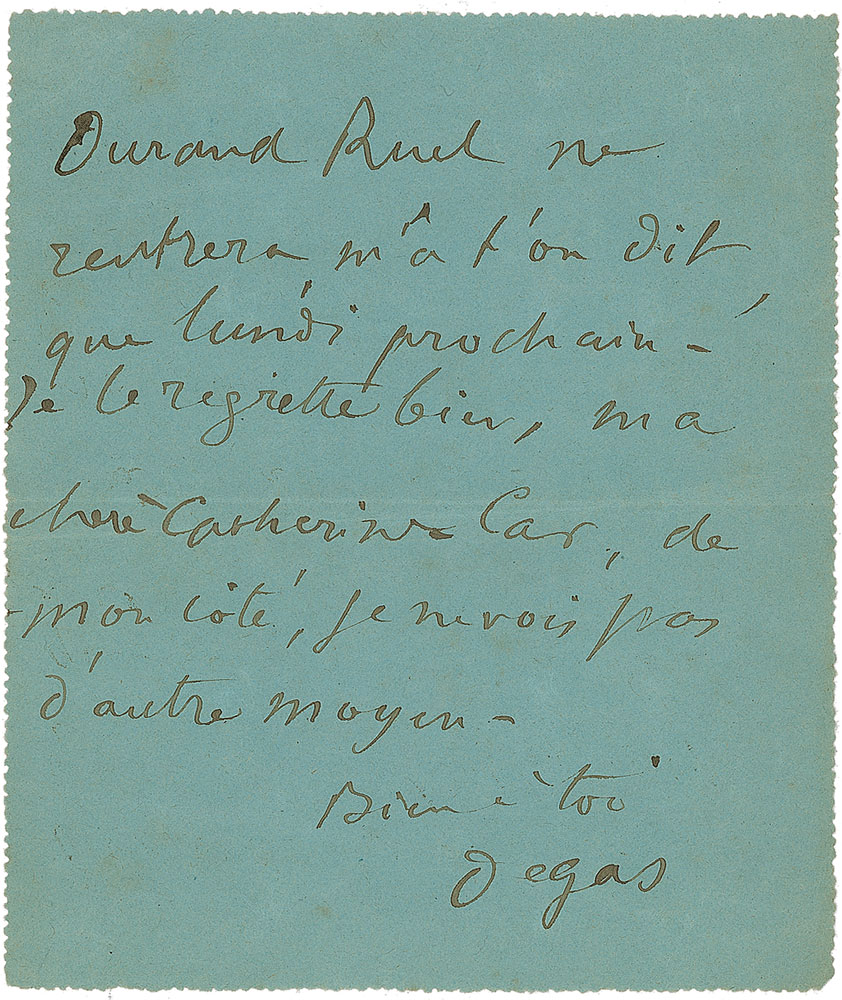 Durand Ruel ne
rentrera m'a t'on dit,
que lundi prochain –
Je le regrette bien, ma
chère Catherine Car, de
mon côté, je ne vois pas
d'autre moyen –
Bien à toi
Degas